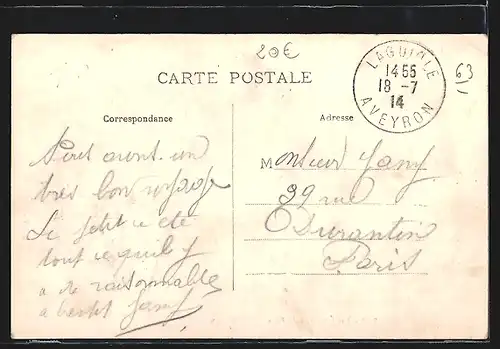 20€
CARTE POSTALE
LAGUIOLE
1455
18 -7
14
AVEYRON
63
Correspondance
Adresse
avons un
très bon voyage
Le petit a été
tout ce qu'il y
a de raisonnable
a bientôt Jamy
Monsieur Jamy
39 rue
Durantin
Paris